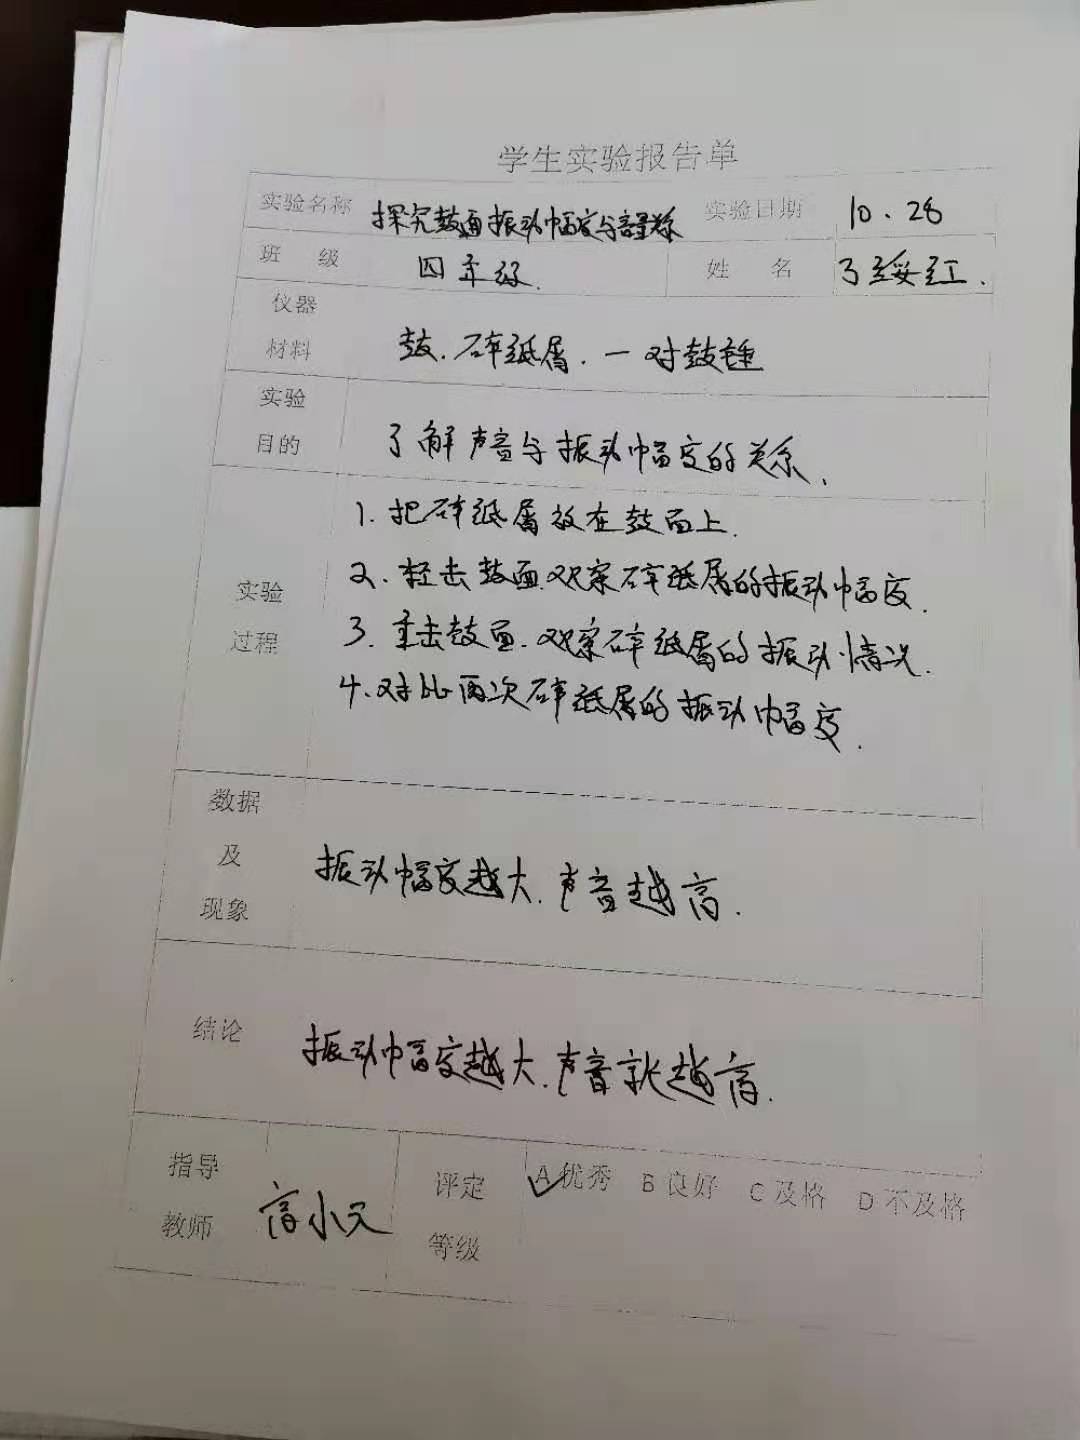 学生实验报告单
实验名称 探究鼓面振动幅度与音量关系 实验日期 10.28
班级 四年级. 姓名
仪器
材料 鼓.碎纸屑.一对鼓锤
实验
目的 了解声音与振动幅度的关系.
1.把碎纸屑放在鼓面上.
2.轻击鼓面.观察碎纸屑的振动幅度.
实验
过程
3.重击鼓面.观察碎纸屑的振动情况.
4.对比两次碎纸屑的振动幅度.
数据
及
现象 振动幅度越大.声音越高.
结论 振动幅度越大.声音就越高.
指导
教师 高小元
评定
等级
A优秀 B良好 C及格 D不及格